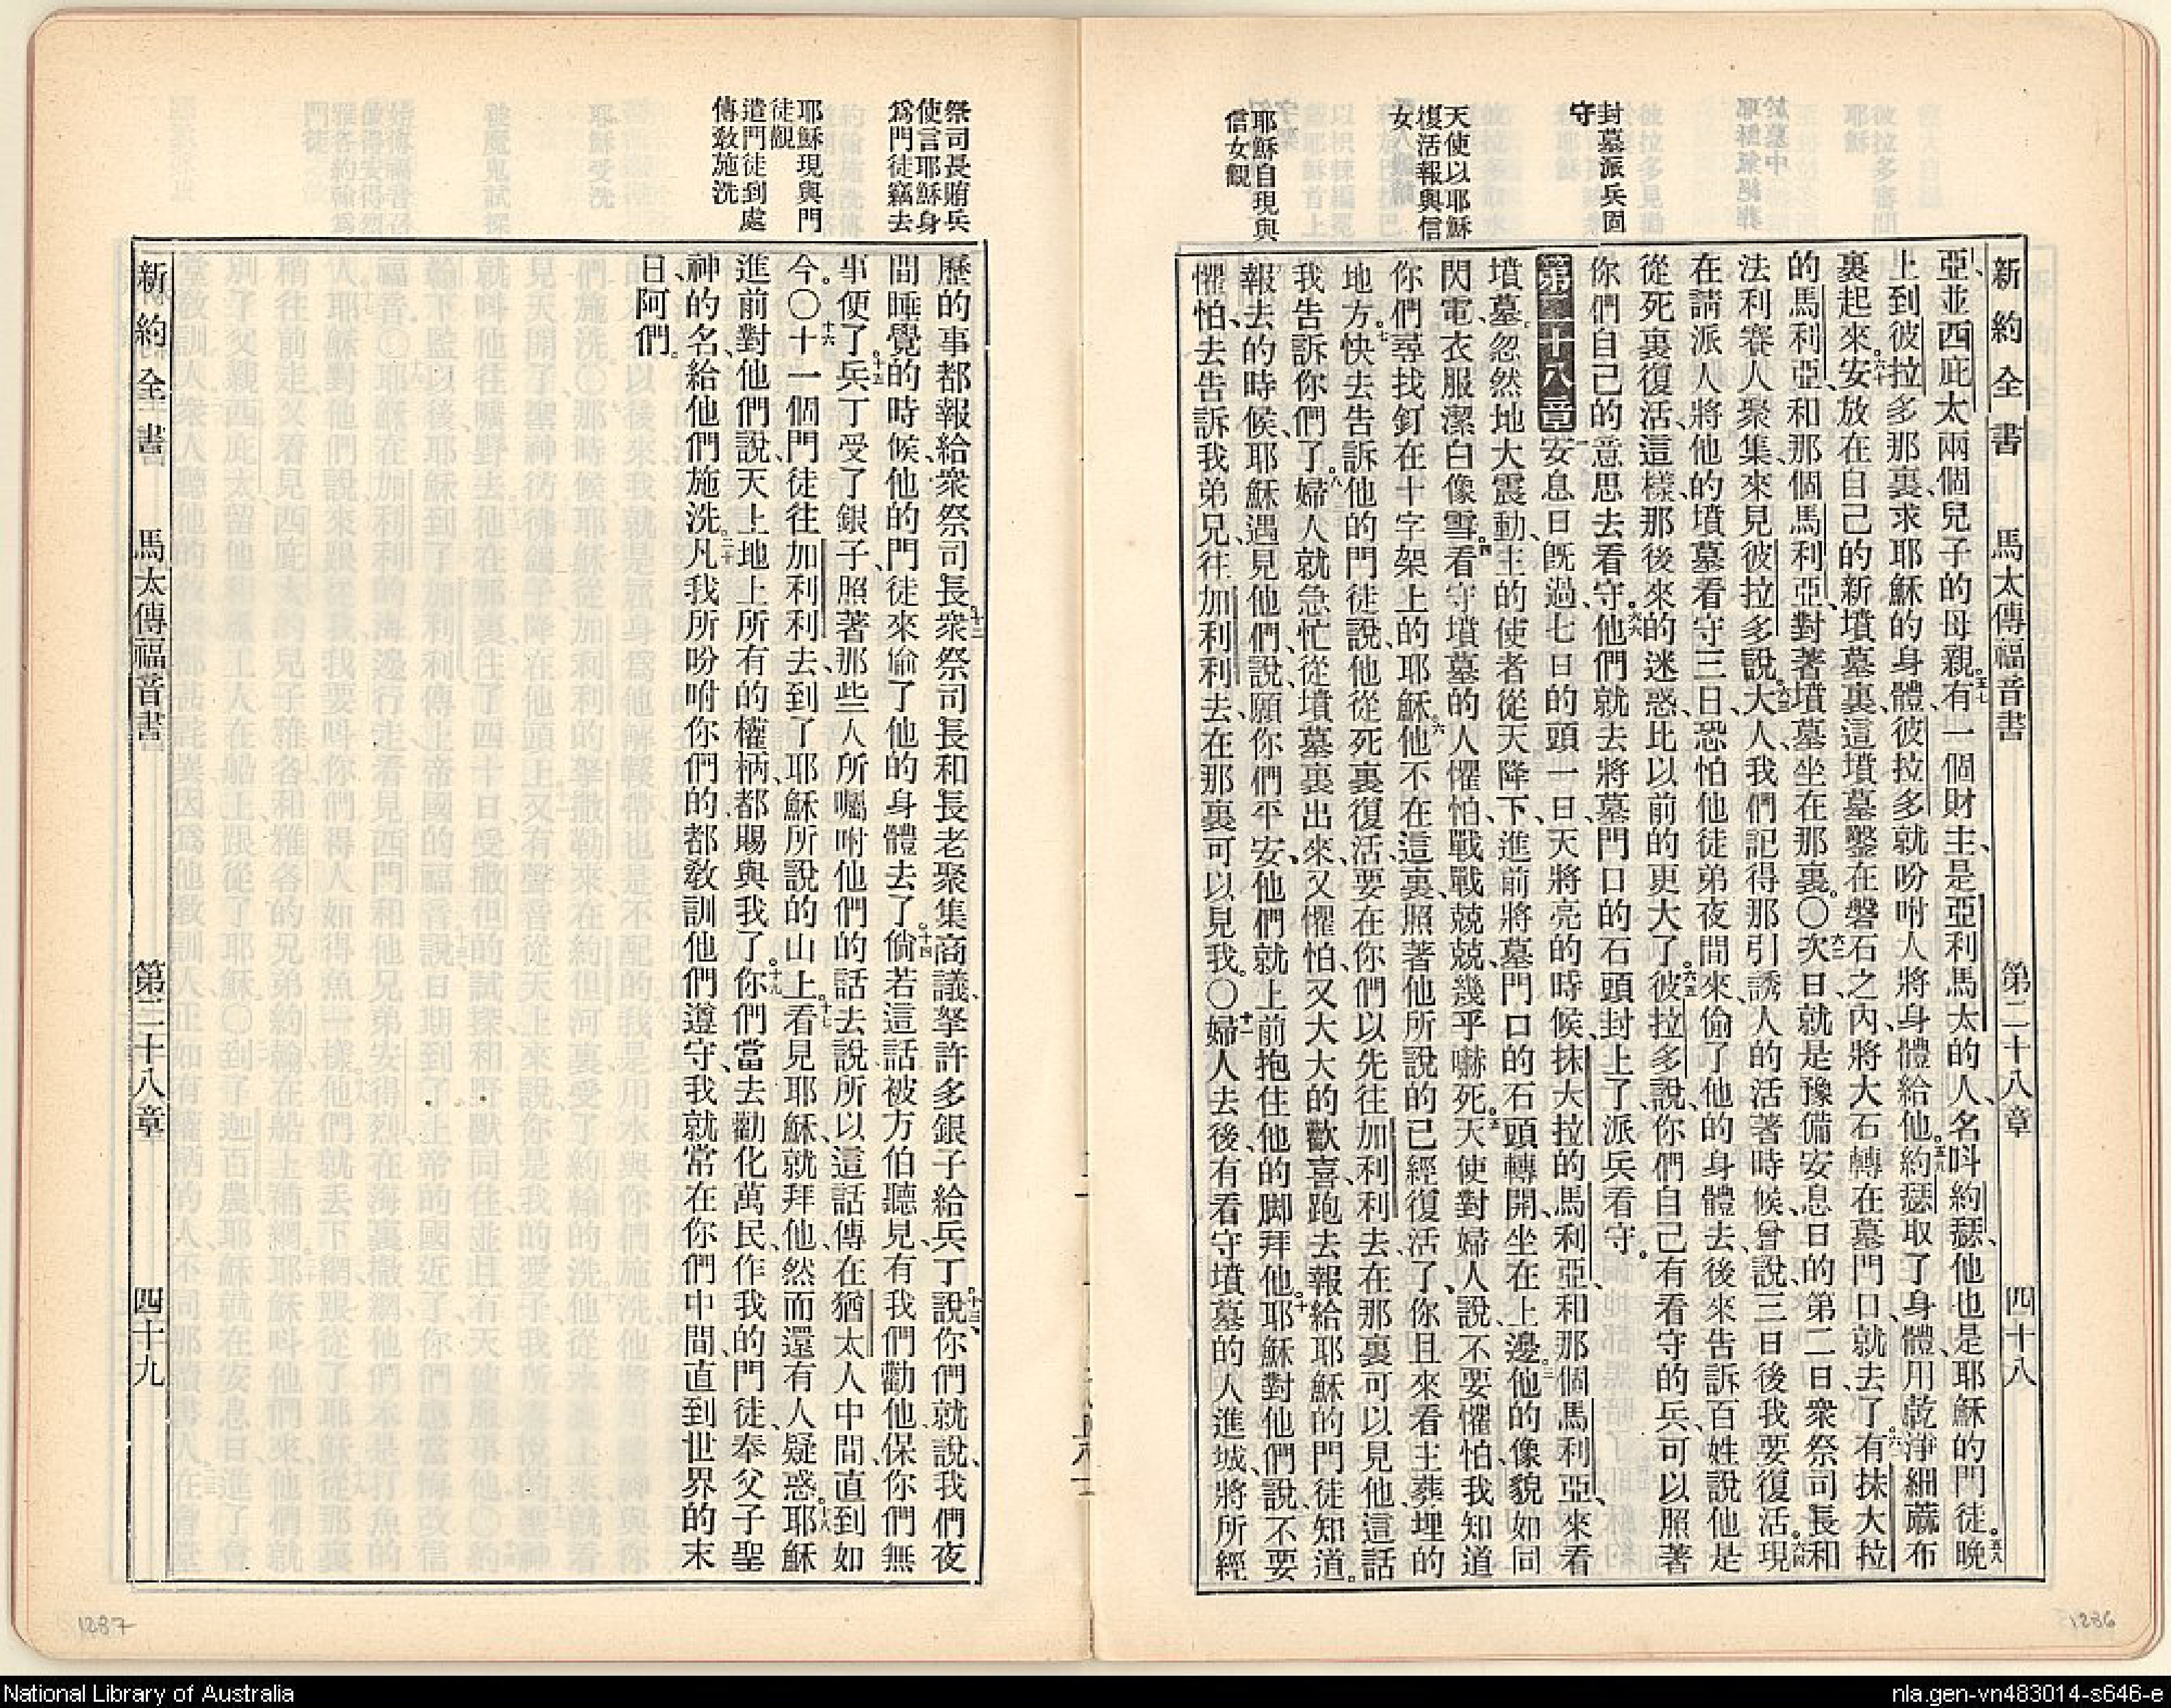 新約全書 馬太傳福音書 第二十八章 四十八
封墓派兵固
守
天使以耶穌
復活報與信
女
耶穌自現與
信女觀
亞並西庇太兩個兒子的母親。五七有一個財主、是亞利馬太的人、名呌約瑟、他也是耶穌的門徒。五八晚
上到彼拉多那裏、求耶穌的身體、彼拉多就吩咐人將身體給他。五九約瑟取了身體、用乾淨細蔴布
裹起來。六十安放在自己的新墳墓裏、這墳墓鑿在磐石之內、將大石轉在墓門口、就去了。六一有抹大拉
的馬利亞、和那個馬利亞、對著墳墓坐在那裏。〇六二次日就是豫備安息日的第二日、衆祭司長和
法利賽人聚集來見彼拉多說。六三大人、我們記得那引誘人的活著時候、曾說三日後我要復活。六四現
在請派人將他的墳墓看守三日、恐怕他徒弟夜間來偷了他的身體去、後來告訴百姓說他是
從死裏復活、這樣、那後來的迷惑、比以前的更大了。六五彼拉多說、你們自己有看守的兵、可以照著
你們自己的意思去看守。六六他們就去將墓門口的石頭封上了、派兵看守。
第二十八章 一安息日旣過、七日的頭一日、天將亮的時候、抹大拉的馬利亞、和那個馬利亞、來看
墳墓。二忽然地大震動、主的使者從天降下、進前將墓門口的石頭轉開、坐在上邊。三他的像貌如同
閃電、衣服潔白像雪。四看守墳墓的人懼怕、戰戰兢兢、幾乎嚇死。五天使對婦人說、不要懼怕、我知道
你們尋找釘在十字架上的耶穌。六他不在這裏、照著他所說的、已經復活了、你且來看主葬埋的
地方。七快去告訴他的門徒說、他從死裏復活、要在你們以先往加利利去、在那裏可以見他、這話
我告訴你們了。八婦人就急忙從墳墓裏出來、又懼怕、又大大的歡喜、跑去報給耶穌的門徒知道。
報去的時候、耶穌遇見他們、說、願你們平安、他們就上前抱住他的脚拜他。十耶穌對他們說、不要
懼怕、去告訴我弟兄、往加利利去、在那裏可以見我。〇十一婦人去後、有看守墳墓的人進城、將所經
1286
祭司長賄兵
使言耶穌身
爲門徒竊去
耶穌現與門
徒觀
遣門徒到處
傳敎施洗
歷的事都報給衆祭司長。十二衆祭司長和長老聚集商議、拏許多銀子給兵丁。十三說、你們就說、我們夜
間睡覺的時候、他的門徒來偷了他的身體去了。十四倘若這話被方伯聽見、有我們勸他、保你們無
事便了。十五兵丁受了銀子、照著那些人所囑咐他們的話去說、所以這話傳在猶太人中間、直到如
今。〇十六十一個門徒往加利利去、到了耶穌所說的山上。十七看見耶穌、就拜他、然而還有人疑惑。十八耶穌
進前對他們說、天上地上所有的權柄、都賜與我了。十九你們當去勸化萬民、作我的門徒、奉父子聖
神的名、給他們施洗。二十凡我所吩咐你們的、都敎訓他們遵守、我就常在你們中間、直到世界的末
日、阿們。
新約全書 馬太傳福音書 第二十八章 四十九
1287
National Library of Australia
nla.gen-vn483014-s646-e